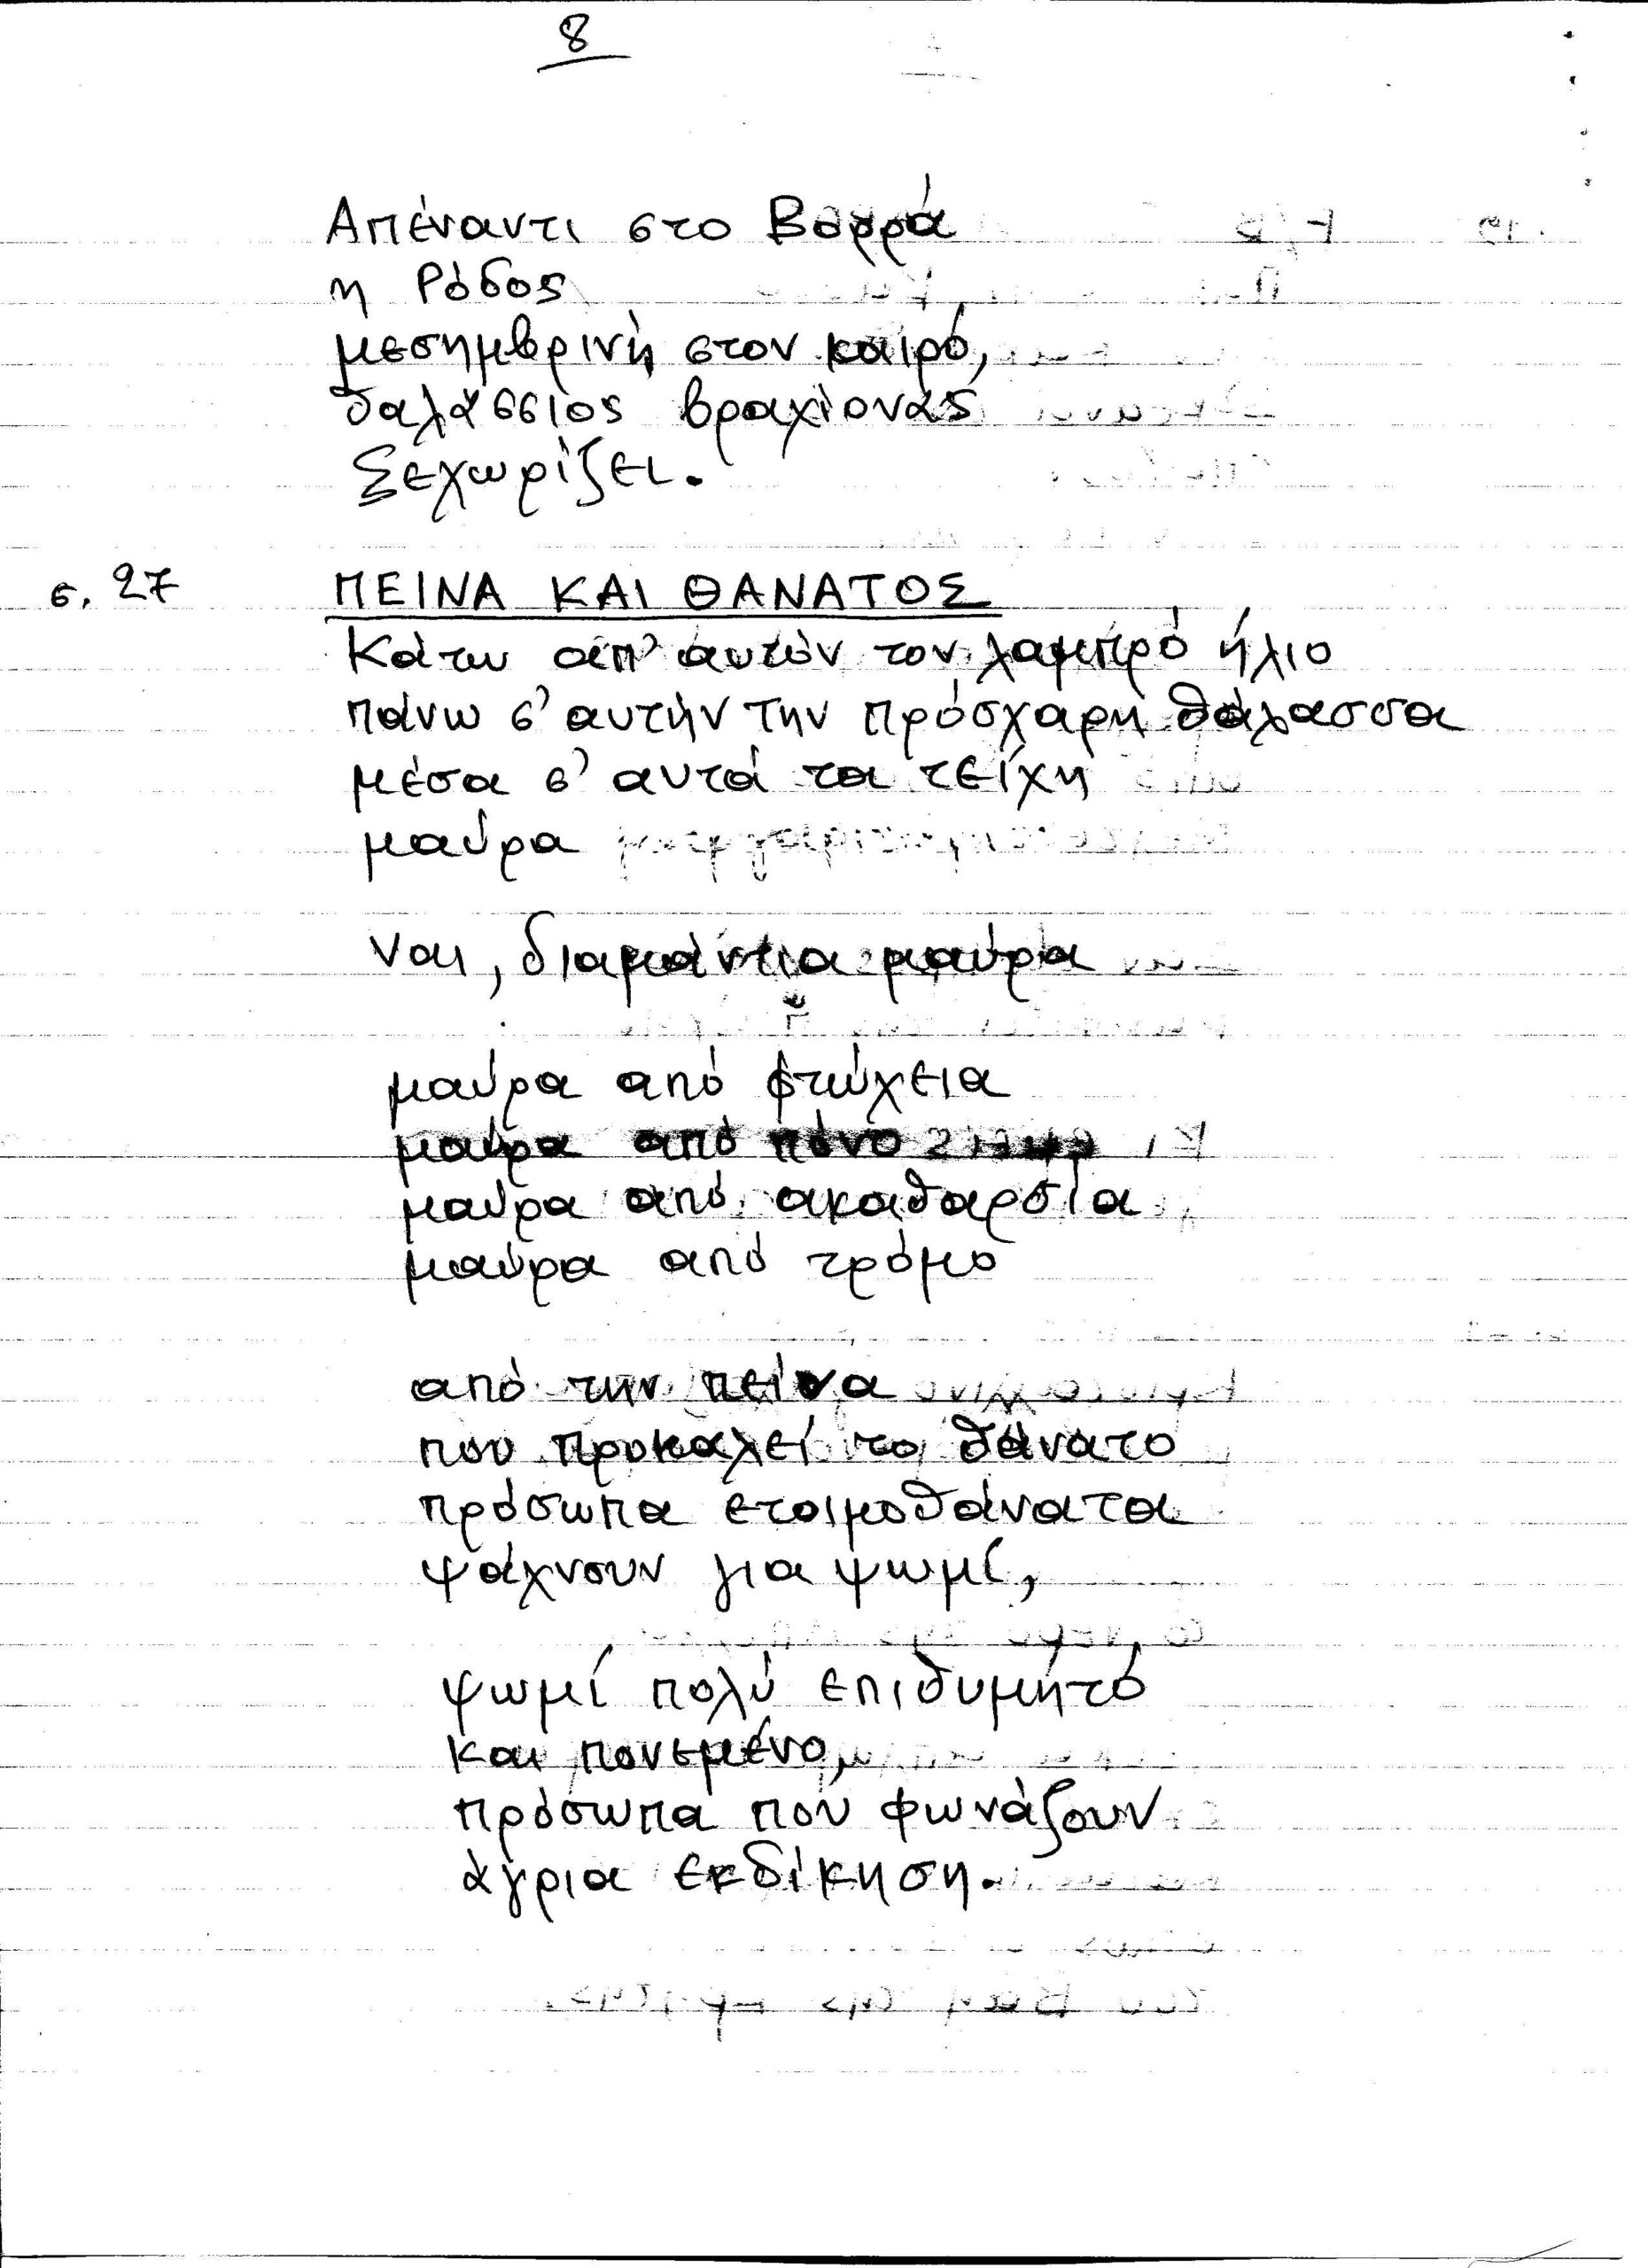 8
Απέναντι στο Βορρά
η Ρόδος
μεσημβρινή στον καιρό,
θαλάσσιος βραχίονας
ξεχωρίζει.
σ. 27 ΠΕΙΝΑ ΚΑΙ ΘΑΝΑΤΟΣ
Κάτω απ' αυτόν τον λαμπρό ήλιο
πάνω σ' αυτήν την πρόσχαρη θάλασσα
μέσα σ' αυτά τα τείχη
μαύρα
ναι, διαμάντια μαύρα
μαύρα από φτώχεια
μαύρα από πόνο
μαύρα από ακαθαρσία
μαύρα από τρόμο
από την πείνα
που προκαλεί το θάνατο
πρόσωπα ετοιμοθάνατα
ψάχνουν για ψωμί,
ψωμί πολύ επιθυμητό
και πονεμένο,
πρόσωπα που φωνάζουν
άγρια εκδίκηση.